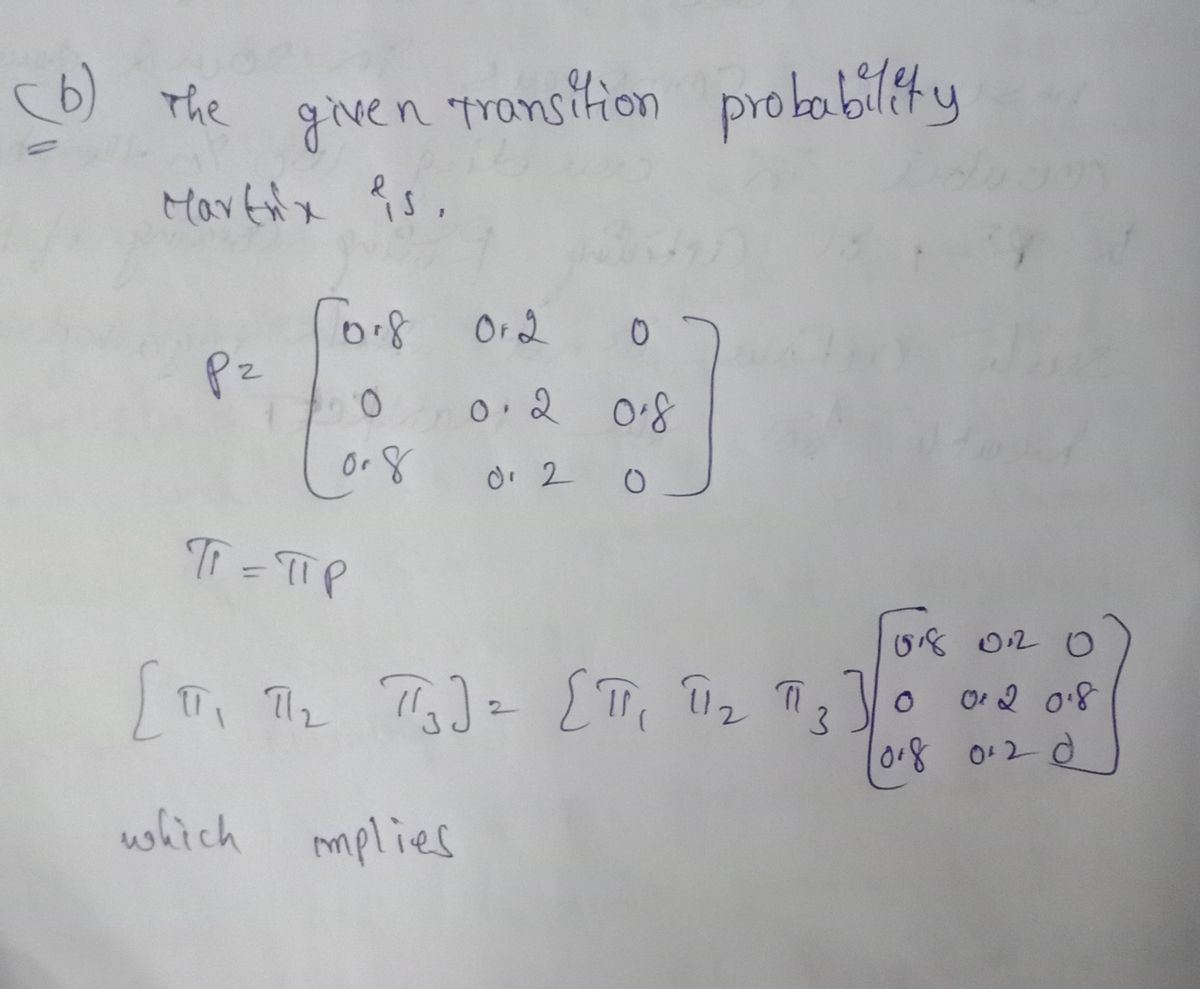 (b) The given transition probability
Martrix is.
P= [0.8 0.2 0
0 0.2 0.8
0.8 0.2 0]
π = πP
[π₁ π₂ π₃] = [π₁ π₂ π₃] [0.8 0.2 0
0 0.2 0.8
0.8 0.2 0]
which implies